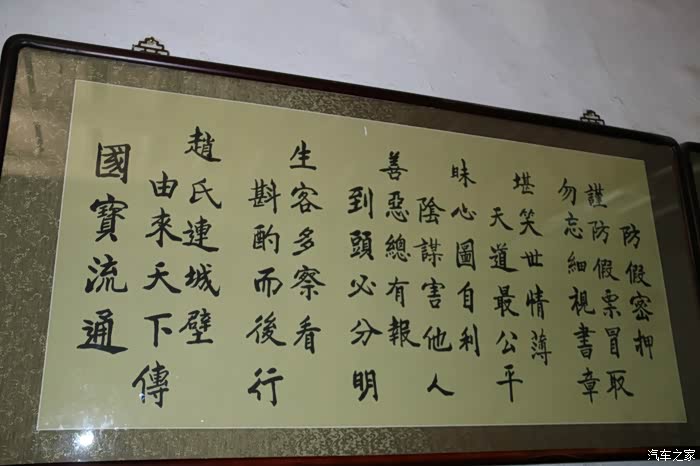 防假密押
謹防假票冒取
勿忘細視書章
堪笑世情薄
天道最公平
昧心圖自利
陰謀害他人
善惡總有報
到頭必分明
生客多察看
斟酌而後行
趙氏連城壁
由來天下傳
國寶流通
汽车之家